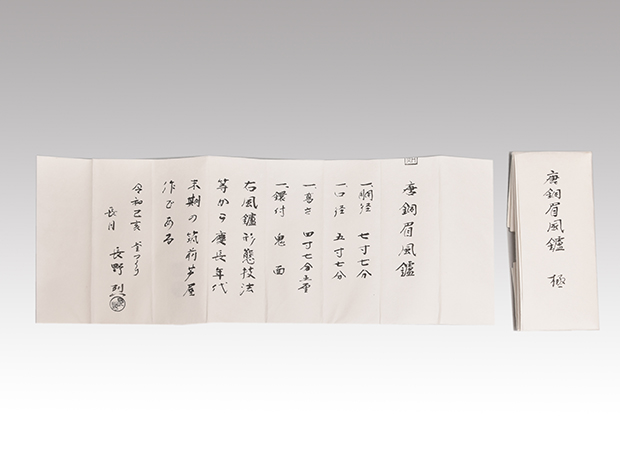 唐銅眉風鑪
一、胴径 七寸七分
一、口径 五寸七分
一、高さ 四寸七分五厘
一、鐶付 鬼面
右風鑪形態技法
等から慶長年代
末期の筑前芦屋
作である
令和己亥 釜つくり
長月 長野 烈
唐銅眉風鑪 極